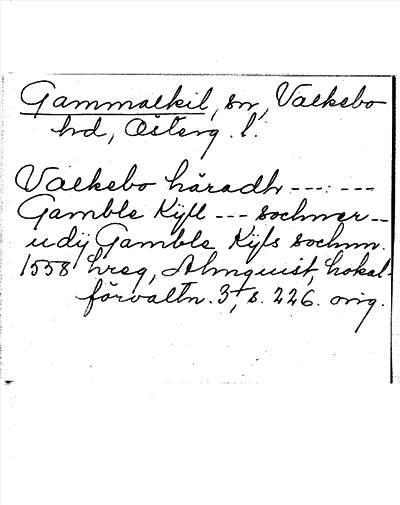 Gammalkil, sn, Valkebo
hd, Österg. l.
Valkebo häradh --- : ---
Gamble Kijll --- sochner --
udij Gamble Kijls sochnn.
1558 hreg, Almquist, Lokal-
förvaltn. 3, s. 226. orig.